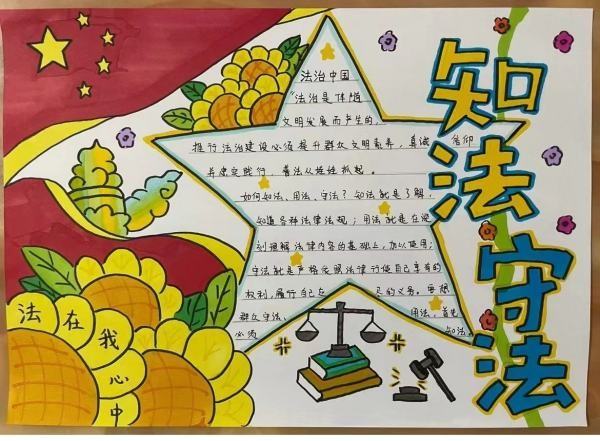 知法
守法
法治中国
"法治是伴随
文明发展而产生的,
推行法治建设必须提升群众文明素养,真诚 信仰
并忠实践行,普法从娃娃抓起。
如何知法、用法、守法?知法就是了解,
知道各种法律法规;用法就是在深
刻理解法律内容的基础上,加以使用;
守法就是严格依照法律行使自己享有的
权利,履行自己应 尽的义务。要想
群众守法、 用法,首先
必须 知法。
法在我心中